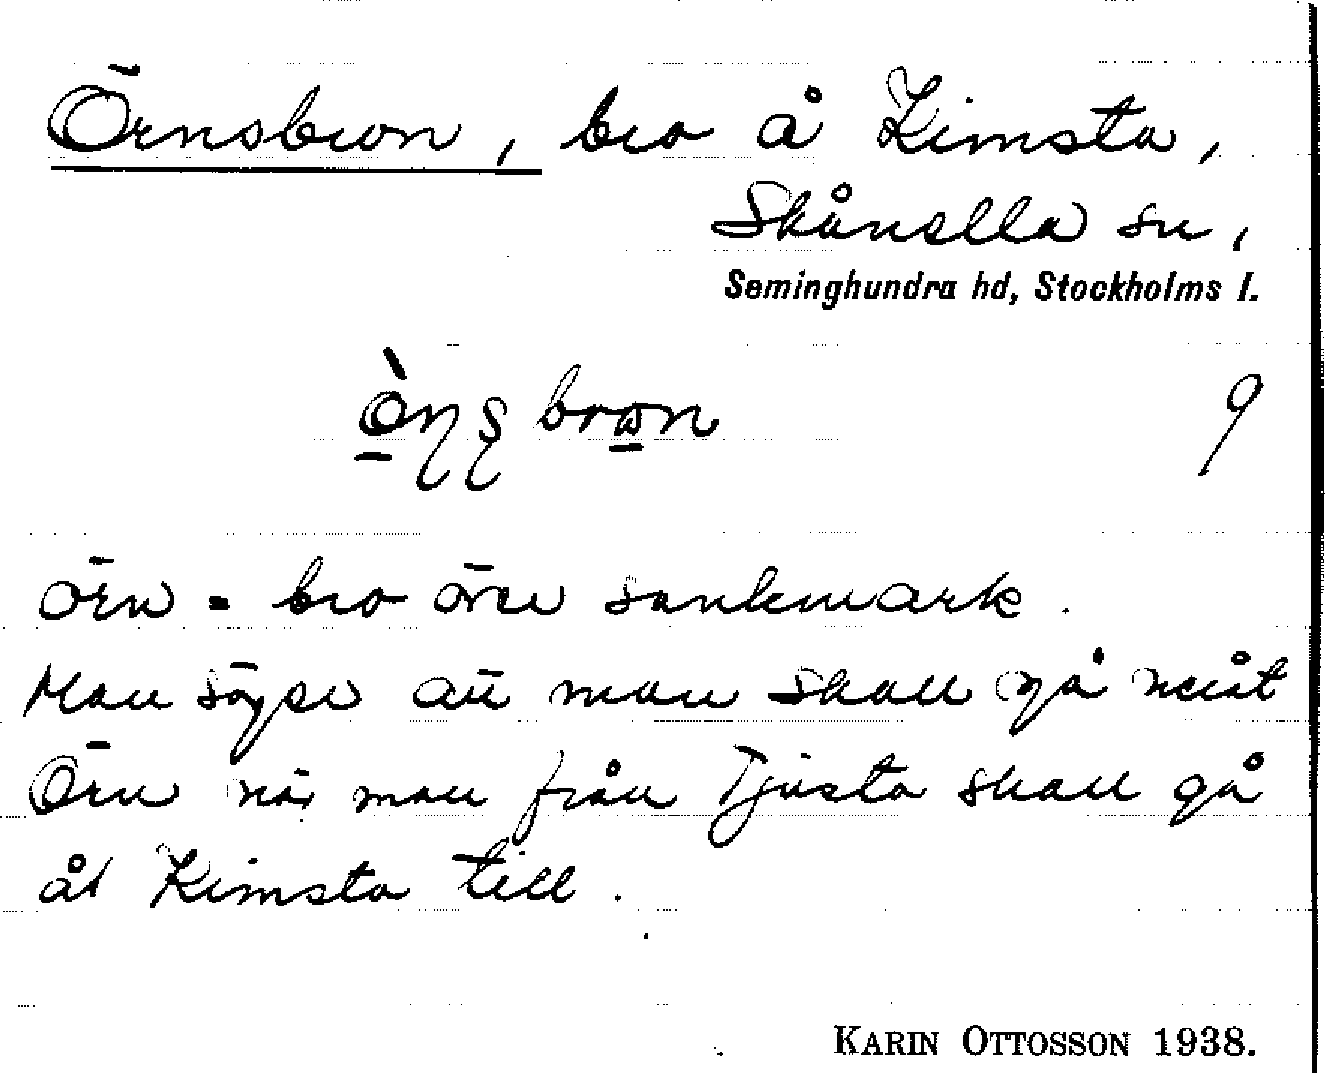 Örnsbron, bro å Kimsta,
Skånella sn,
Seminghundra hd, Stockholms l.
9
Örn = bro över sankmark.
Man säger att man skall gå neråt
Örn när man från Tjusta skall gå
åt Kimsta till.
KARIN OTTOSSON 1938.